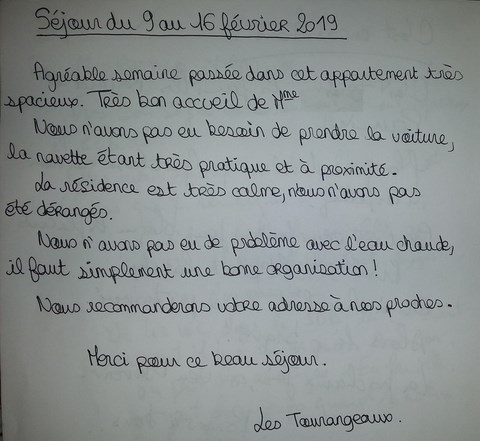 Séjour du 9 au 16 février 2019
Agréable semaine passée dans cet appartement très
spacieux. Très bon accueil de Mme
Nous n'avons pas eu besoin de prendre la voiture,
la navette étant très pratique et à proximité.
La résidence est très calme, nous n'avons pas
été dérangés.
Nous n'avons pas eu de problème avec l'eau chaude,
il faut simplement une bonne organisation !
Nous recommanderons votre adresse à nos proches.
Merci pour ce beau séjour.
Les Tourangeaux.